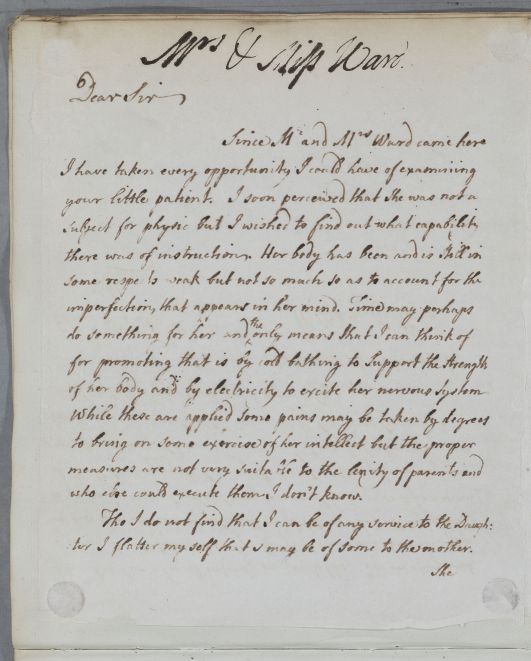 Mrs & Miss Ward.
Dear Sir
Since Mr. and Mrs Ward came here
I have taken every opportunity I could have of examining
your little patient. I soon perceived that she was not a
subject for physic but I wished to find out what capability
there was of instruction. Her body has been and is still in
some respects weak but not so much so as to account for the
imperfection, that appears in her mind. Time may perhaps
do something for her and the only means that I can think of
for promoting that is by cold bathing to support the strength
of her body and by electricity to excite her nervous system
While these are applied some pains may be taken by degrees
to bring on some exercise of her intellect but the proper
measures are not very suitable to the lenity of parents and
who else could execute them I don't know.
Tho I do not find that I can be of any service to the Daugh:
ter I flatter my self that I may be of some to the mother.
She